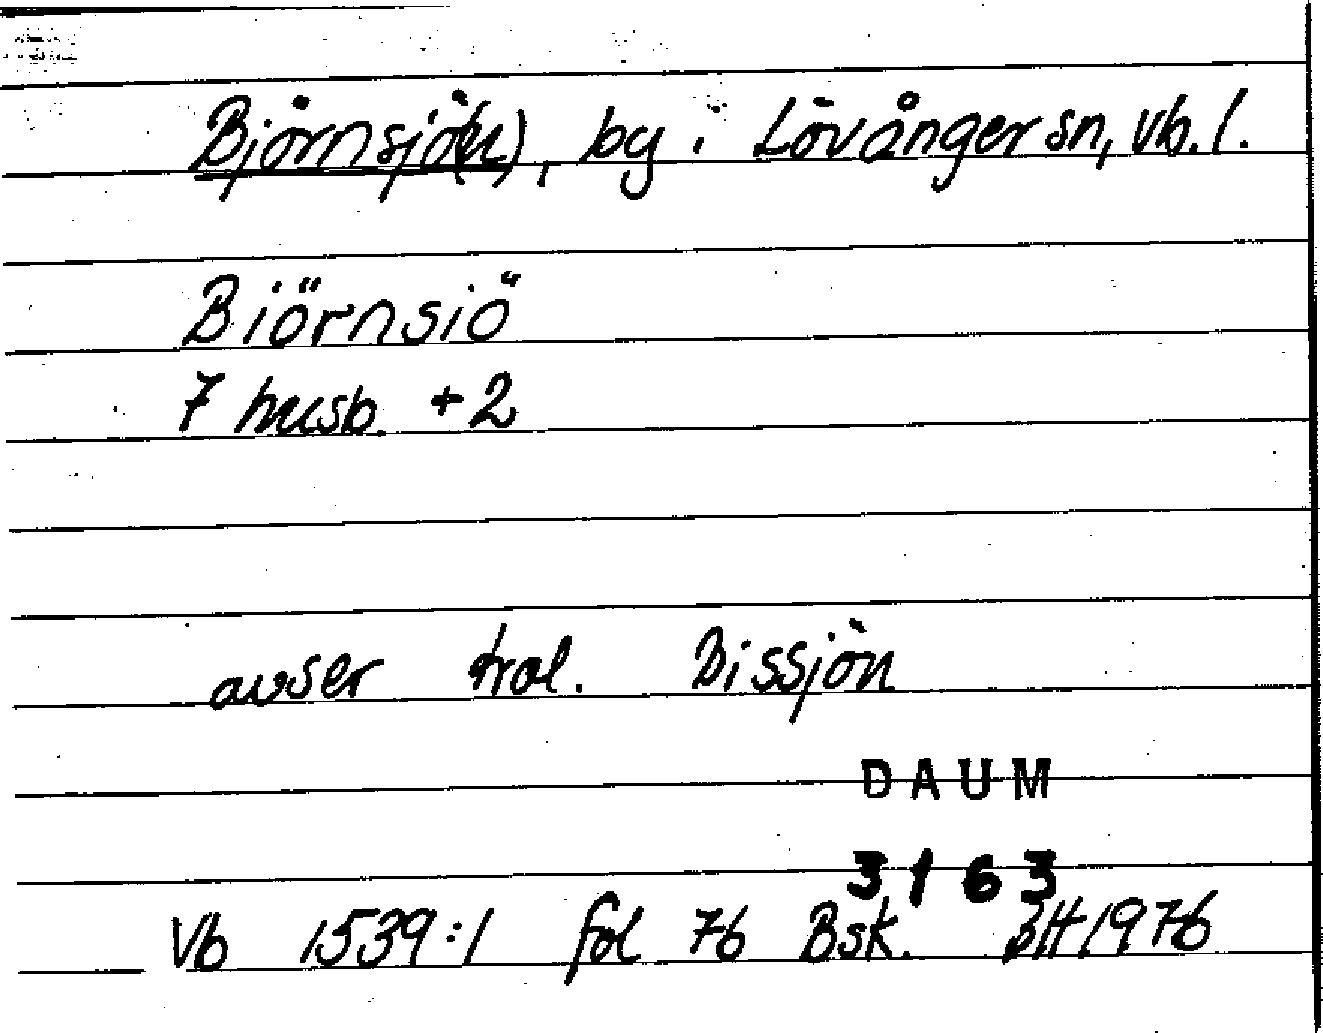 Björnsjö(n), by i Lövånger sn, Vb. l.
Biörnsiö
7 husb. +2
avser trol. Bissjön
DAUM
3163
Vb 1539:1 fol 76 Bsk. BH 1976